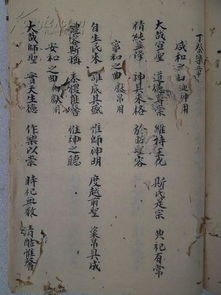 丁祭樂章
咸和之曲迎神用
大哉宣聖 道德尊崇 維持王化 斯民是宗 典祀有常
精純並隆 神其來格 於昭聖容
寧和之曲 奠帛用
自生民來 誰底其盛 惟師神明 度越前聖 粢帛具成
禮容斯稱 黍稷非馨 惟神之聽
安和之曲初獻用
大哉師聖 實天生德 作樂以崇 時祀無斁 清酤惟馨